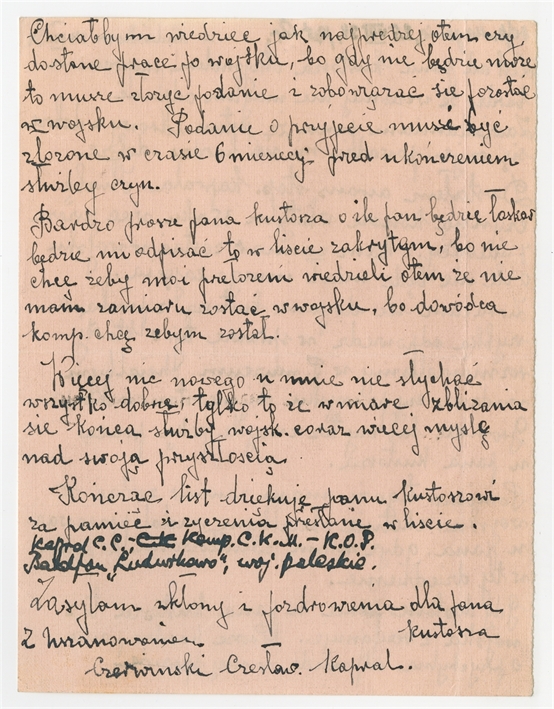 Chciałbym wiedziee jak najprędzej otem czy
dostane prace po wojsku, bo gdy nie będzie może
to musze złożyc podanie i zobowiązać sie pozostać
w wojsku. Podanie o przyjęcie musi być
złozone w czasie 6 miesięcy przed ukończeniem
służby czyn.
Bardzo prosze pana kustosza o ile pan będzie łaskaw
będzie mi odpisać to w liscie zakrytym, bo nie
chcę żeby moi przełożeni wiedzieli otem że nie
mam zamiaru zostać w wojsku, bo dowódca
komp. chcę zebym został.
Więcej nic nowego u mnie nie słychać
wszystko dobre, tylko to że w miare zbliżania
sie końca służby wojsk. coraz więcej myslę
nad swoją przyszłoscią.
Kończac list dziekuję panu kustoszowi
za pamięć i życzenia przesłane w liscie.
Kaprol C.C. Komp. C.K.M. - K.O.P.
"Ludwikowo", woj. poleskie.
Zasyłam ukłony i pozdrowienia dla pana
kustosza
Z uszanowaniem
Czerwinski Czesław. Kapral.